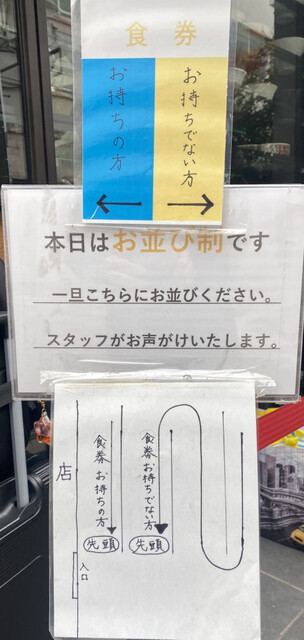 食券
お持ちの方
お持ちでない方
本日はお並び制です
一旦こちらにお並びください。
スタッフがお声がけいたします。
店
入口
食券お持ちの方
先頭
食券お持ちでない方
先頭